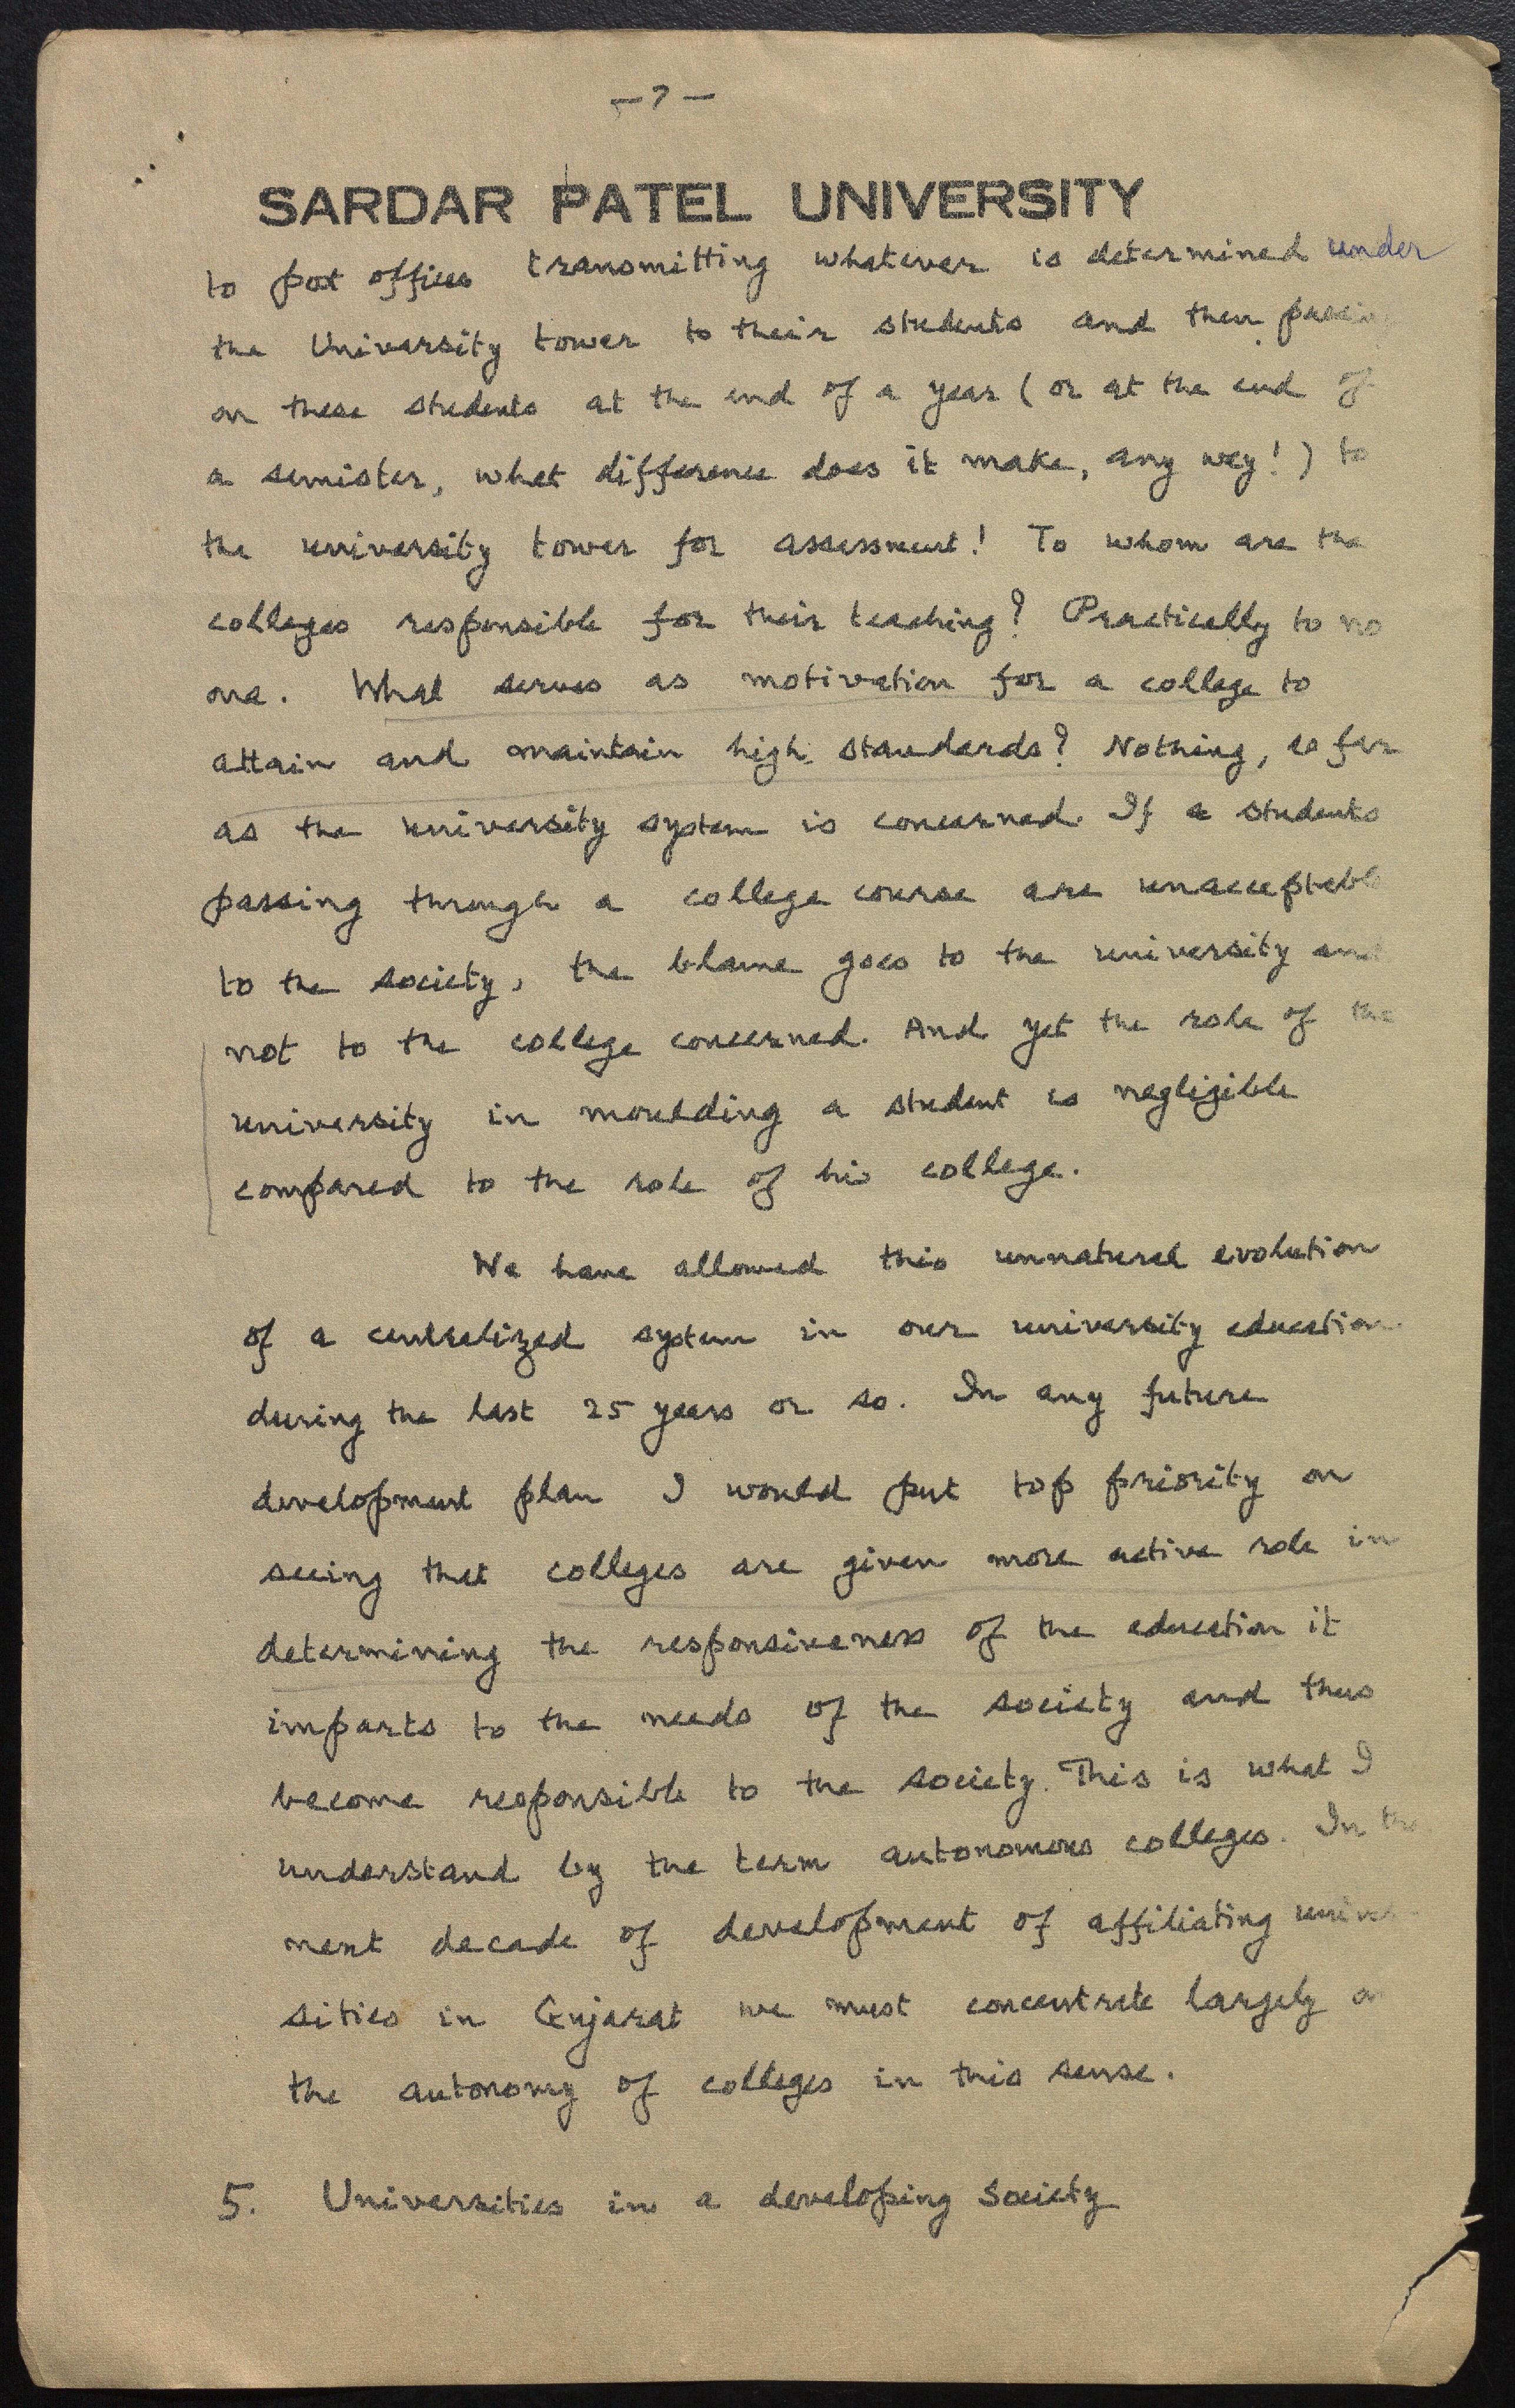 -7-
SARDAR PATEL UNIVERSITY
to post offices transmitting whatever is determined under
the University tower to their students and then passing
on these students at the end of a year (or at the end of
a semister, what difference does it make, any way!) to
the university tower for assessment! To whom are the
colleges responsible for their teaching? Practically to no
one. What serves as motivation for a college to
attain and maintain high standards? Nothing, as far
as the university system is concerned. If a students
passing through a college course are unacceptable
to the society, the blame goes to the university and
not to the college concerned. And yet the role of the
university in moulding a student is negligible
compared to the role of his college.
We have allowed this unnatural evolution
of a centralized system in our university education
during the last 25 years or so. In any future
development plan I would put top priority on
seeing that colleges are given more active role in
determining the responsiveness of the education it
imparts to the needs of the society and thus
become responsible to the society. This is what I
understand by the term autonomous colleges. In the
next decade of development of affiliating univer-
sities in Gujarat we must concentrate largely on
the autonomy of colleges in this sense.
5. Universities in a developing Society